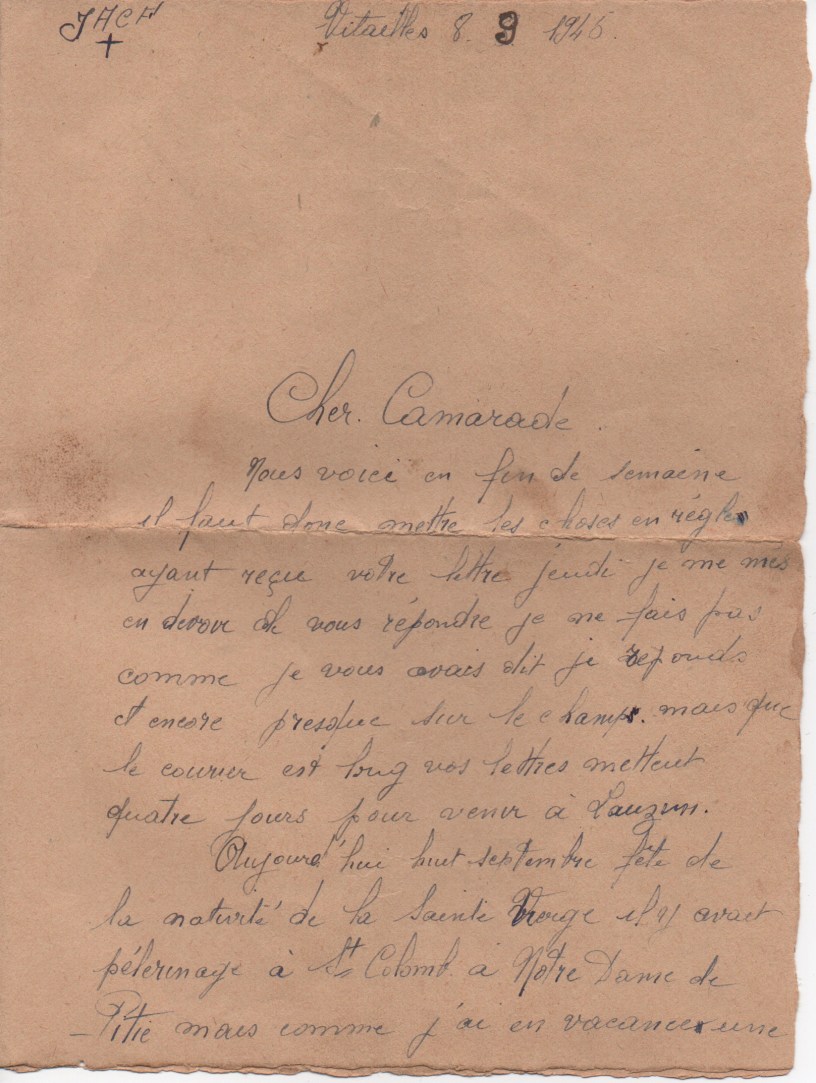 JACF
+
Vitailles 8. 9 1945.
Cher. Camarade.
Nous voici en fin de semaine
il faut donc mettre les choses en règles
ayant reçu votre lettre jeudi je me mes
en devoir de vous répondre je ne fais pas
comme je vous avais dit je reponds
et encore presque sur le champs. mais que
le courrier est long vos lettres mettent
quatre jours pour venir à Lauzun.
Aujourd'hui huit septembre fête de
la nativité de la Sainte Vierge il y avait
pélerinage à St Colomb. à Notre Dame de
Pitié mais comme j'ai en vacances une